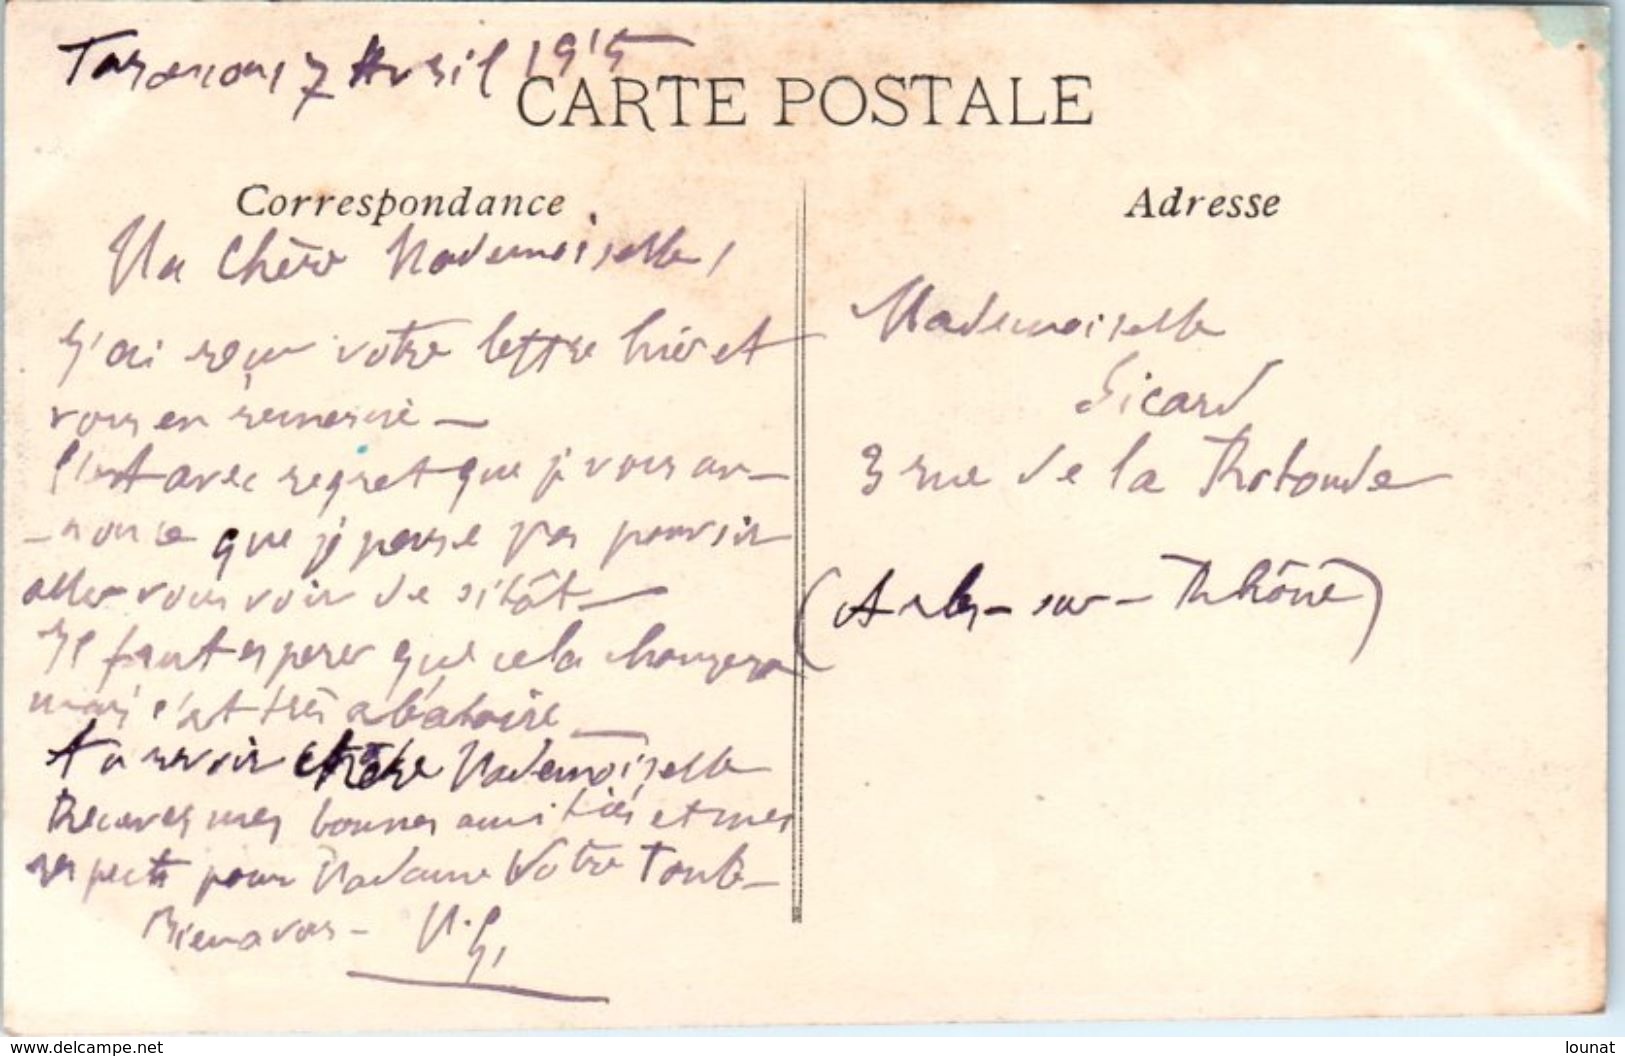 Tarascon 7 Avril 1915
CARTE POSTALE
Correspondance
Ma Chère Mademoiselle,
J'ai reçu votre lettre hier et
vous en remercie —
C'est avec regret que je vous an-
-nonce que je pense pas pouvoir
aller vous voir de sitôt —
Il faut esperer que cela changera
mais c'est très aléatoire —
Au revoir chère Mademoiselle
Recevez mes bonnes amitiés et mes
respects pour Madame Votre Tante —
Bien a vous —
Adresse
Mademoiselle
Sicard
3 rue de la Rotonde
(Arles-sur-Rhône)
www.delcampe.net
lounat